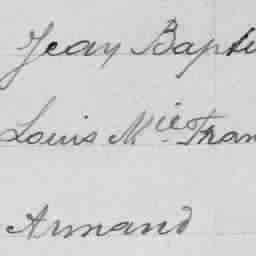 Jean Bapti
Louis Mie Fran
Armand